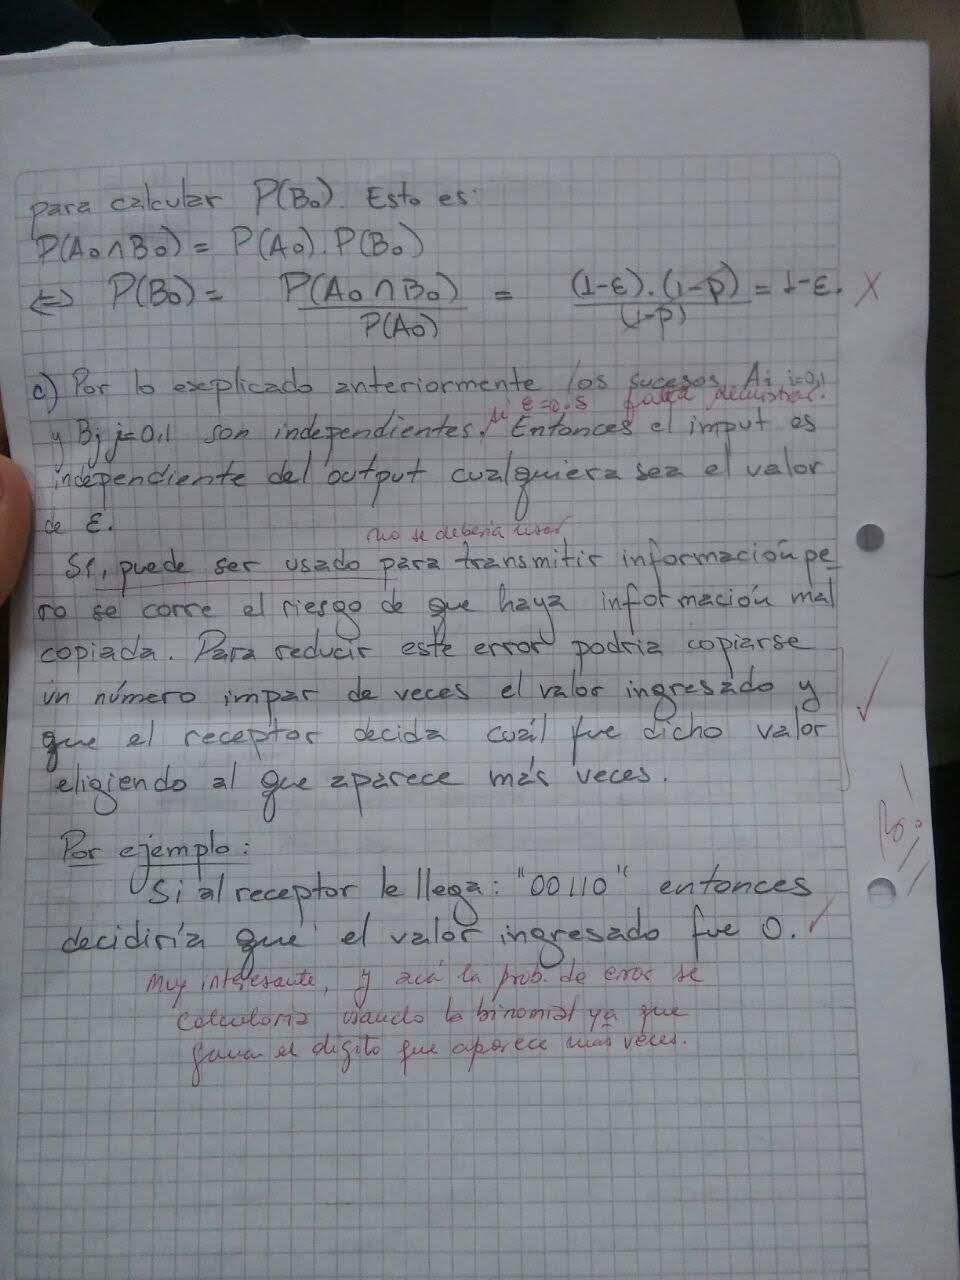 para calcular P(B₀). Esto es:
P(A₀∩B₀) = P(A₀).P(B₀)
⇔ P(B₀) = P(A₀∩B₀) / P(A₀) = (1-ε).(1-p) / (1-p) = 1-ε. X
c) Por lo explicado anteriormente los sucesos Ai i=0,1
si ε=0.5 falta demostrar.
y Bj j=0,1 son independientes. Entonces el imput es
independiente del output cualquiera sea el valor
de ε.
no se debería usar
Sí, puede ser usado para transmitir información pe
ro se corre el riesgo de que haya información mal
copiada. Para reducir este error podría copiarse
un número impar de veces el valor ingresado y
que el receptor decida cuál fue dicho valor
eligiendo al que aparece más veces.
Por ejemplo:
Si al receptor le llega: "00110" entonces
decidiría que el valor ingresado fue 0.
Muy interesante, y acá la prob. de error se
calcularía usando la binomial ya que
gana el dígito que aparece más veces.